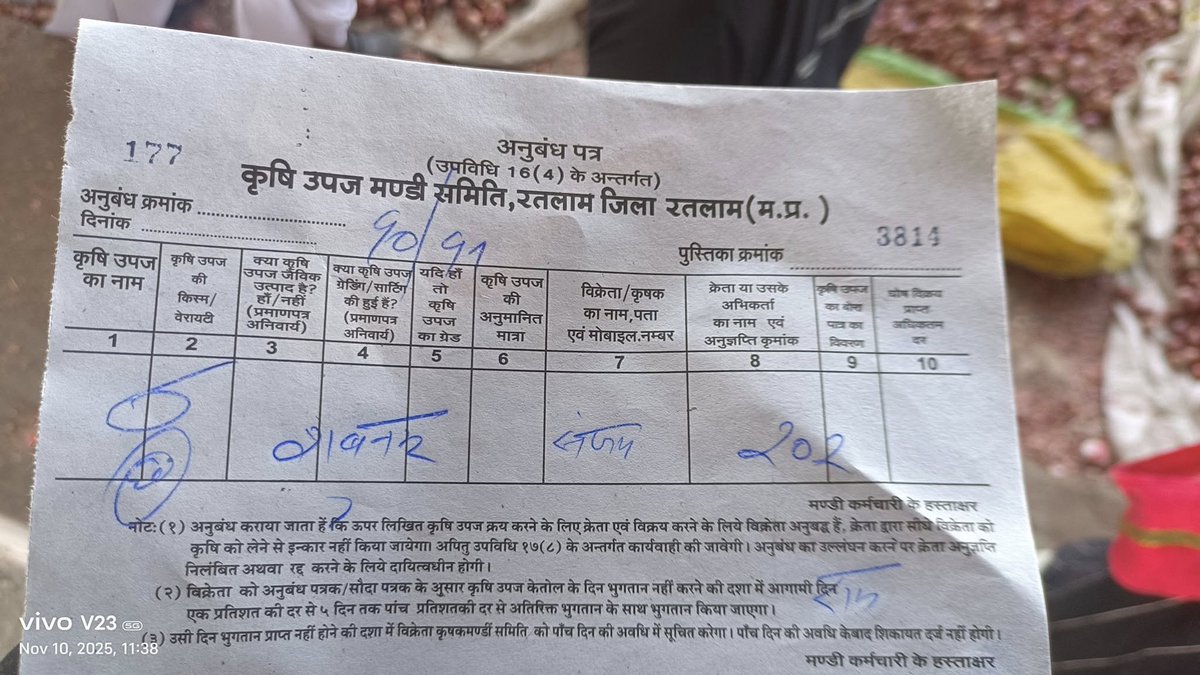 177
अनुबंध पत्र
(उपविधि 16(4) के अन्तर्गत)
कृषि उपज मण्डी समिति,रतलाम जिला रतलाम(म.प्र. )
अनुबंध क्रमांक
दिनांक १०/११
पुस्तिका क्रमांक 3814
कृषि उपज का नाम
कृषि उपज की किस्म/ वेरायटी
क्या कृषि उपज जैविक उत्पाद है? हाँ/नहीं (प्रमाणपत्र अनिवार्य)
क्या कृषि उपज ग्रेडिंग/सार्टिग की हुई है? (प्रमाणपत्र अनिवार्य)
यदि/हाँ तो कृषि उपज का ग्रेड
कृषि उपज की अनुमानित मात्रा
विक्रेता/कृषक का नाम,पता एवं मोबाइल.नम्बर
क्रेता या उसके अभिकर्ता का नाम एवं अनुज्ञप्ति कृमांक
कृषि उपज का बोरा पात्र का विवरण
घोष विक्रय प्राप्त अधिकतम दर
1 2 3 4 5 6 7 8 9 10
संजय २०२
मण्डी कर्मचारी के हस्ताक्षर
नोट:(१) अनुबंध कराया जाता हैं कि ऊपर लिखित कृषि उपज क्रय करने के लिए क्रेता एवं विक्रय करने के लिये विक्रेता अनुबद्ध हैं, क्रेता द्वारा सीधे विक्रेता को
कृषि को लेने से इन्कार नहीं किया जायेगा। अपितु उपविधि १७(८) के अन्तर्गत कार्यवाही की जावेगी। अनुबंध का उल्लंघन करने पर क्रेता अनुज्ञप्ति
निलंबित अथवा रद्द करने के लिये दायित्वधीन होगी।
(२) विक्रेता को अनुबंध पत्रक/सौदा पत्रक के अुसार कृषि उपज केतोल के दिन भुगतान नहीं करने की दशा में आगामी दिन
एक प्रतिशत की दर से ५ दिन तक पांच प्रतिशतकी दर से अतिरिक्त भुगतान के साथ भुगतान किया जाएगा।
(३) उसी दिन भुगतान प्राप्त नहीं होने की दशा में विक्रेता कृषकमण्डीं समिति को पाँच दिन की अवधि में सूचित करेगा। पाँच दिन की अवधि केबाद शिकायत दर्ज नहीं होगी।
मण्डी कर्मचारी के हस्ताक्षर
vivo V23 5G
Nov 10, 2025, 11:38